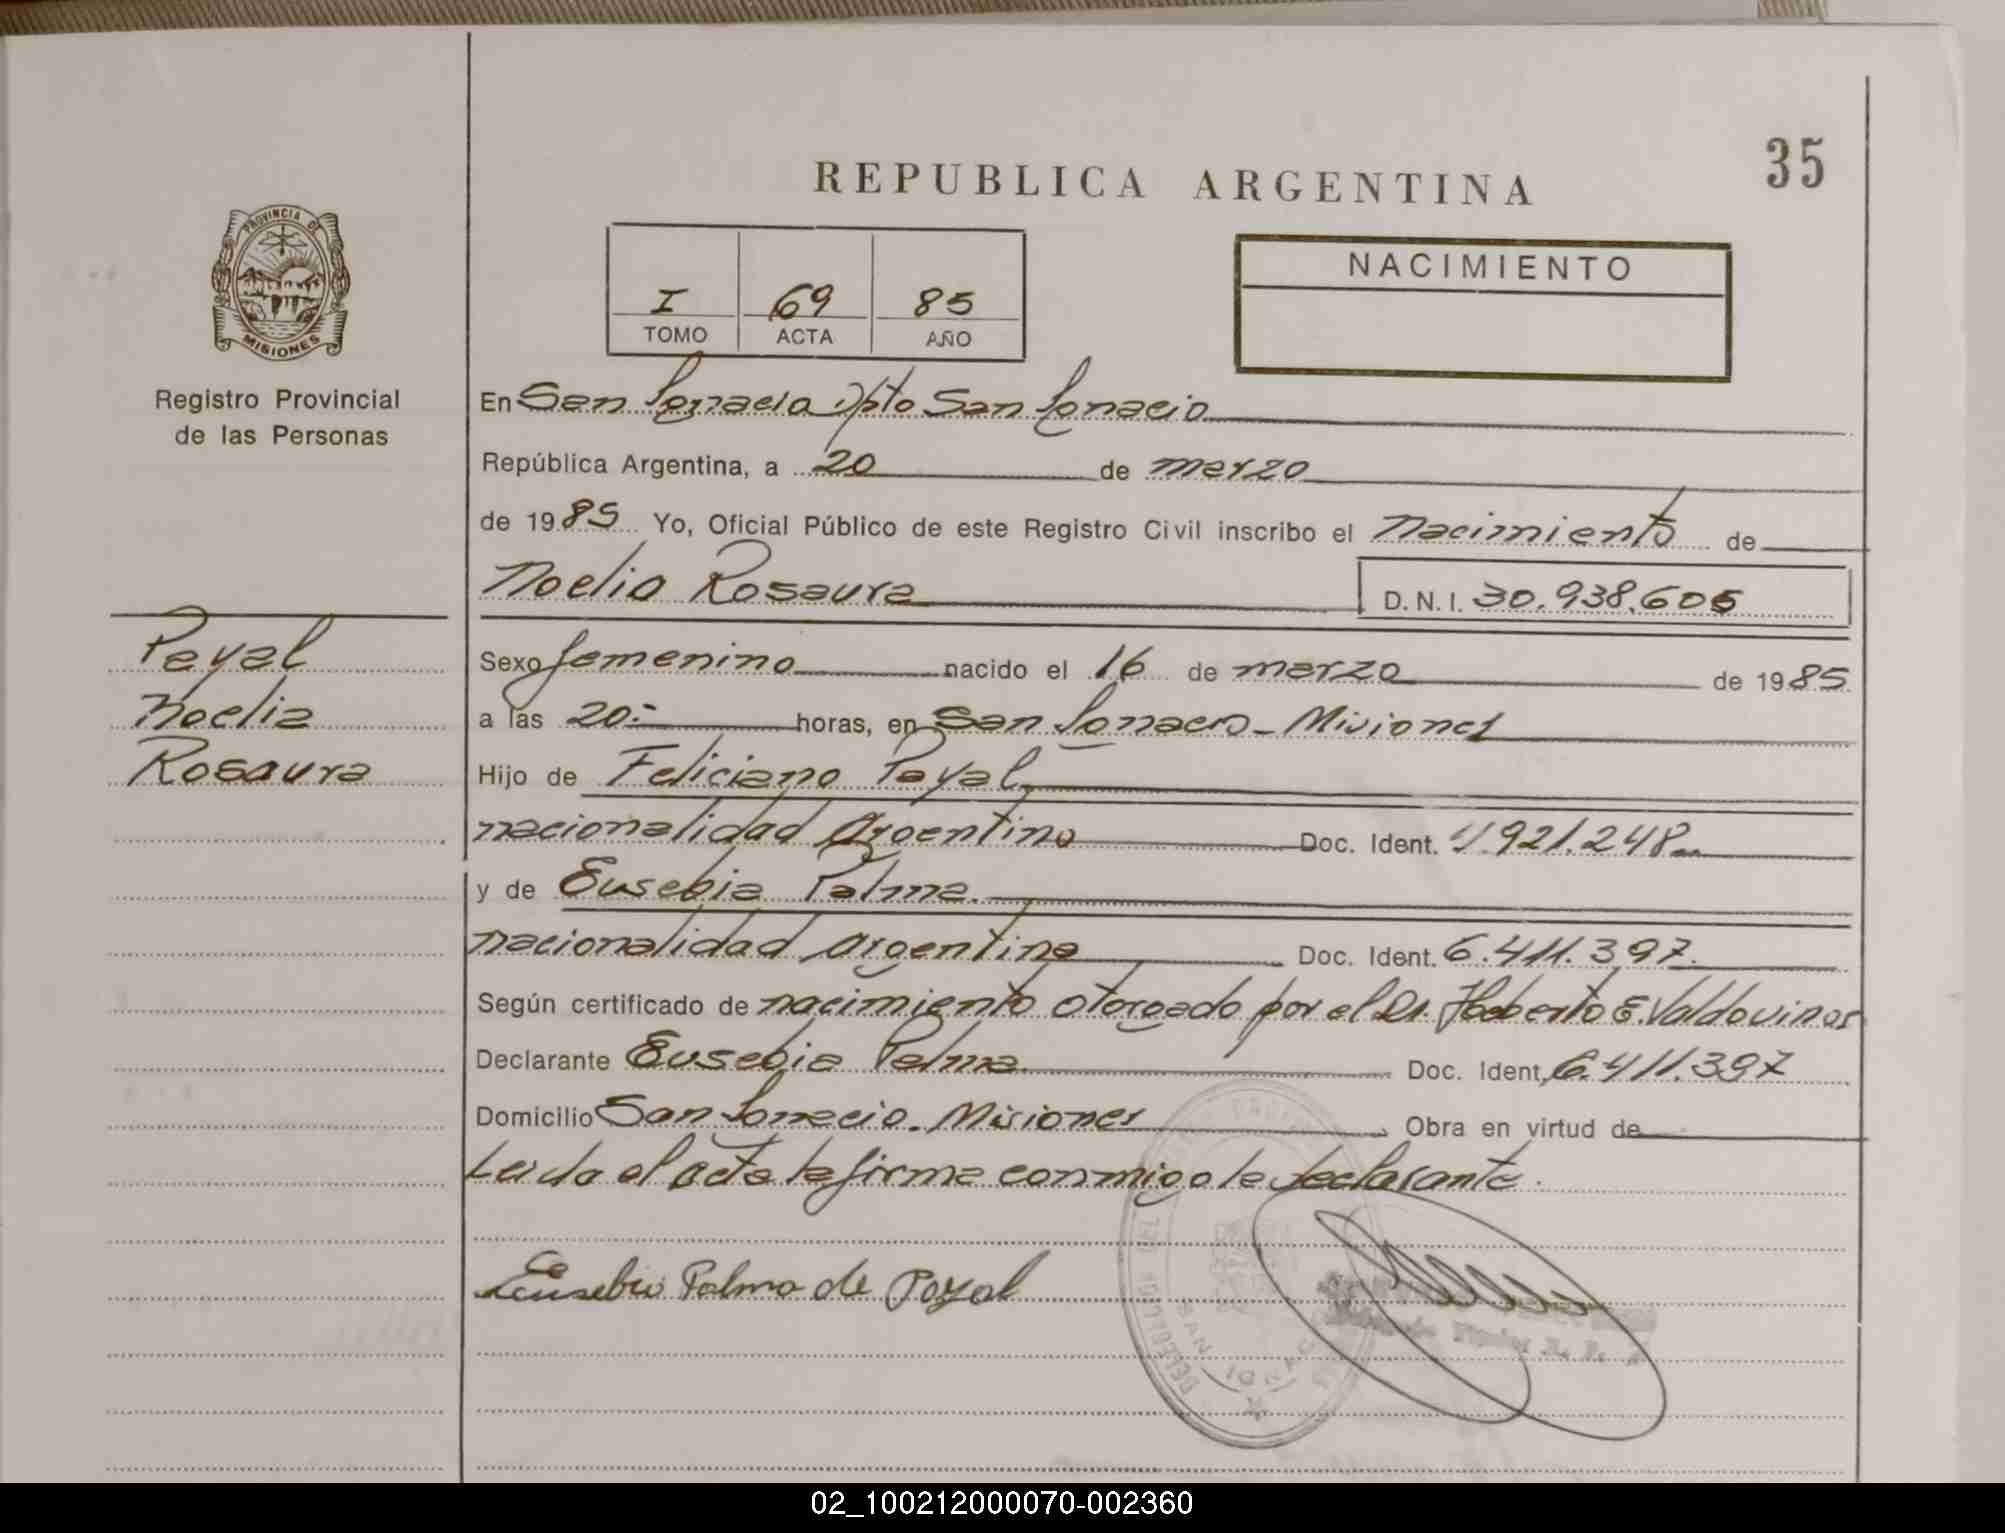 35
REPUBLICA ARGENTINA
PROVINCIA DE
MISIONES
Registro Provincial
de las Personas
I 69 85
TOMO ACTA AÑO
NACIMIENTO
En San Ignacio Dpto San Ignacio
República Argentina, a 20 de marzo
de 1985 Yo, Oficial Público de este Registro Civil inscribo el Nacimiento de
Noelia Rosaura D.N.I. 30.938.605
Payal
Noelia
Rosaura
Sexo femenino nacido el 16 de marzo de 1985
a las 20:- horas, en San Ignacio - Misiones
Hijo de Feliciano Payal
nacionalidad Argentino Doc. Ident. 921.248
y de Eusebia Palma.
nacionalidad argentina Doc. Ident. 6.411.397.
Según certificado de nacimiento otorgado por el Dr. Heberto E. Valdovinos
Declarante Eusebia Palma Doc. Ident, 6.411.397
Domicilio San Ignacio. Misiones Obra en virtud de
Leida el acta la firma conmigo la declarante.
Eusebia Palma de Payal
02_100212000070-002360